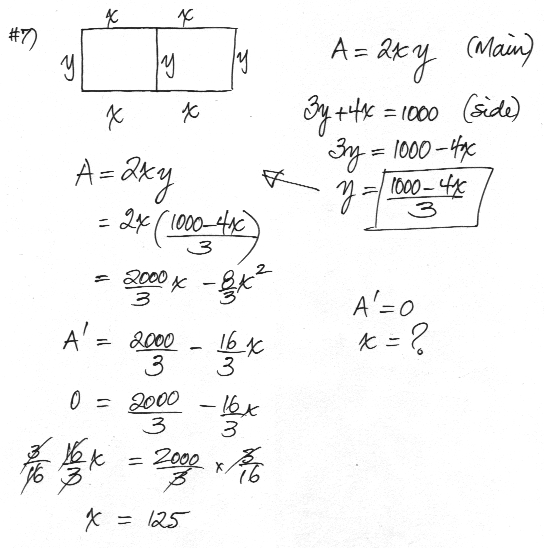 #7)
x x
y y y
x x
A = 2xy (Main)
3y + 4x = 1000 (side)
3y = 1000 - 4x
y = (1000 - 4x)/3
A = 2xy
= 2x((1000 - 4x)/3)
= 2000/3 x - 8/3 x²
A' = 2000/3 - 16/3 x
0 = 2000/3 - 16/3 x
3/16 16/3 x = 2000/3 × 3/16
x = 125
A' = 0
x = ?